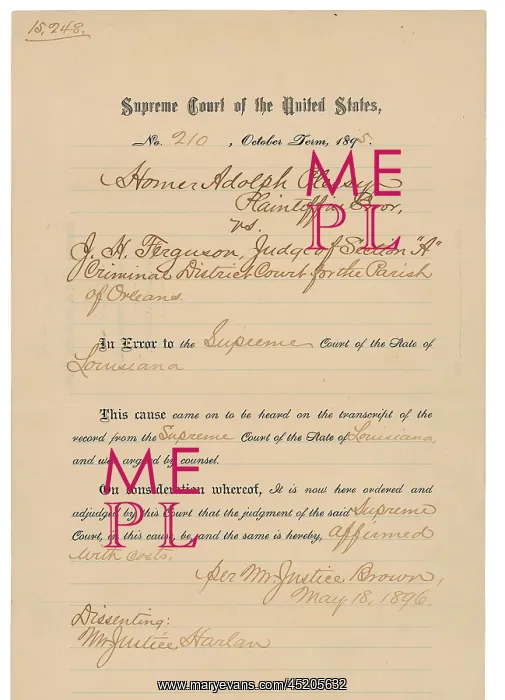 15,248.
Supreme Court of the United States,
No. 210, October Term, 1895.
Homer Adolph Plessy
Plaintiff in Error,
vs.
J. H. Ferguson, Judge of Section "A"
Criminal District Court for the Parish
of Orleans.
In Error to the Supreme Court of the State of
Louisiana
This cause came on to be heard on the transcript of the
record from the Supreme Court of the State of Louisiana,
and was argued by counsel.
On consideration whereof, It is now here ordered and
adjudged by this Court that the judgment of the said Supreme
Court, in this cause, be, and the same is hereby, affirmed
with costs.
Per Mr. Justice Brown,
May 18, 1896.
Dissenting:
Mr. Justice Harlan
ME
PL
ME
PL
www.maryevans.com/45205632